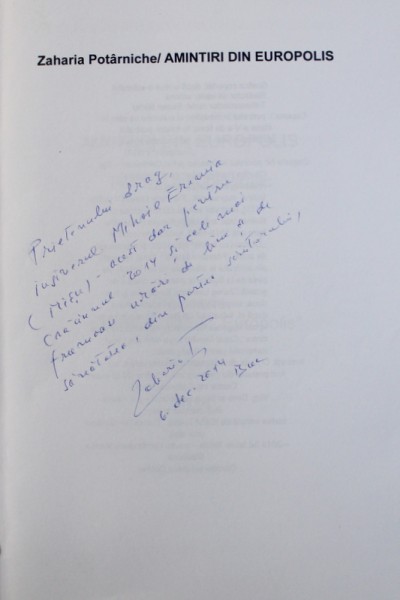 Zaharia Potârniche/ AMINTIRI DIN EUROPOLIS
Prietenului drag,
inginerul Mihail Eremia
(Mișu) - acest dar pentru
Crăciunul 2014 și cele mai
frumoase urări de bine și de
sănătate, din partea scriitorului,
Zaharia P.
6. dec. 2014 Buc